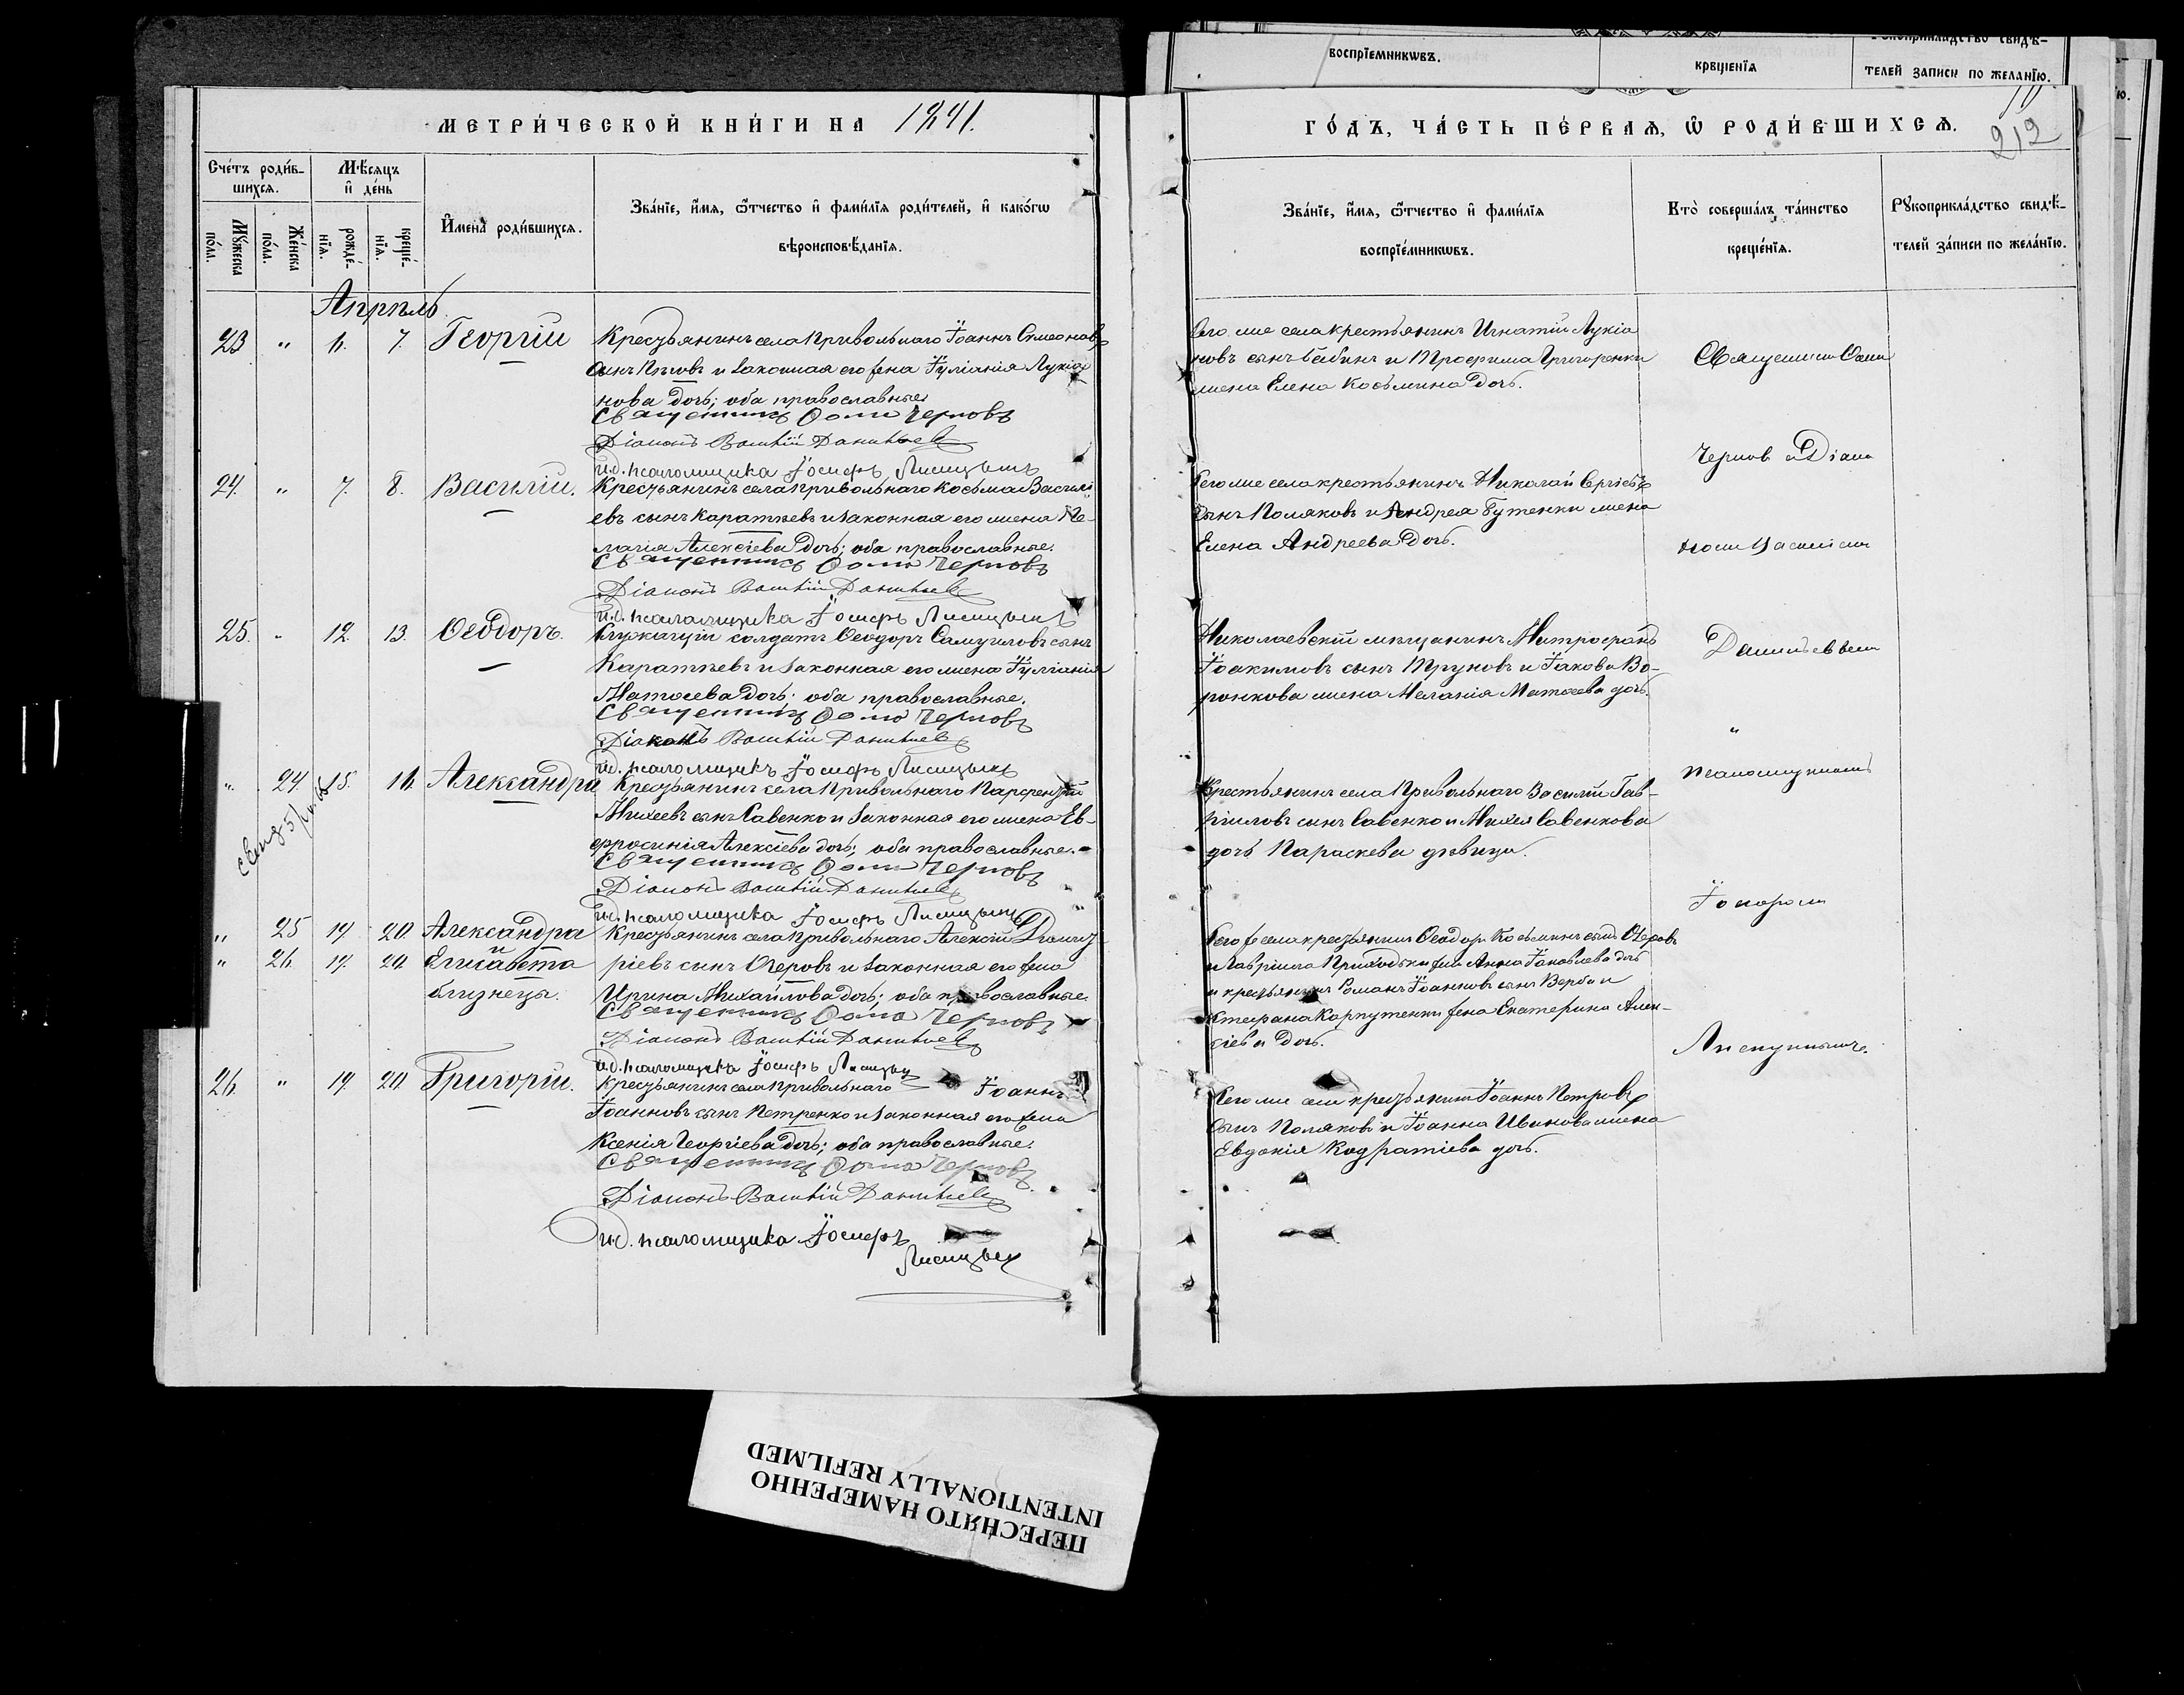 воспрїемникѡвъ.
крещенїя
телей записи по желанїю.
МЕТРИ́ЧЕСКОЙ КНИ́ГИ НА 1891.
Сче́тъ роди́в-
шихся.
Мѣ́сяцъ
и҆ де́нь
Мꙋ́жеска
по́ла.
Же́нска
по́ла.
рожде́-
нїя.
креще́-
нїя.
И҆мена̀ роди́вшихся.
Зва́нїе, и҆́мя, ѻ҆́тчество и҆ фами́лїя роди́телей, и҆ како́гѡ
вѣроисповѣ́данїя.
Апрѣль
23 " 6. 7. Георгій
Крестьянинъ села Привольнаго Іоаннъ Симеоновъ
сынъ и законная его жена Іуліанія Лукіа
нова дочь; оба православные
Священникъ Ѳома Черновъ
Діаконъ Василій Данильевъ
и.д. псаломщика Іосифъ Лисицынъ
24. " 7. 8. Василій.
Крестьянинъ села Привольнаго Косьма Василі
евъ сынъ Каратѣевъ и законная его жена Пе-
лагія Алексіева дочь; оба православные.
Священникъ Ѳома Черновъ
Діаконъ Василій Данильевъ
и.д. псаломщика Іосифъ Лисицынъ
25. " 12. 13. Ѳеодоръ.
Служащій солдатъ Ѳеодоръ Самуиловъ сынъ
Каратѣевъ и законная его жена Іуліанія
Матѳеева дочь; оба православные.
Священникъ Ѳома Черновъ
Діаконъ Василій Данильевъ
и.д. псаломщикъ Іосифъ Лисицынъ
" 24. 15. 16. Александра
Крестьянинъ села Привольнаго Парфентій
Михеевъ сынъ Савенко и законная его жена Ев-
фросинія Алексіева дочь; оба православные.
Священникъ Ѳома Черновъ
Діаконъ Василій Данильевъ
и.д. псаломщика Іосифъ Лисицынъ
" 25 19 20. Александра
и
" 26. 19. 20. Елисавета
близнецы.
Крестьянинъ села Привольнаго Алексій Димит
ріевъ сынъ Ѳеровъ и законная его жена
Ирина Михайлова дочь; оба православные.
Священникъ Ѳома Черновъ
Діаконъ Василій Данильевъ
и.д. псаломщика Іосифъ Лисицынъ
26. " 19. 20 Григорій.
Крестьянинъ села Привольнаго Іоаннъ
Іоанновъ сынъ Петренко и законная его жена
Ксенія Георгіева дочь; оба православные.
Священникъ Ѳома Черновъ
Діаконъ Василій Данильевъ
и.д. псаломщика Іосифъ
Лисицынъ
ГО́ДЪ, ЧА́СТЬ ПЕ́РВАЯ, Ѽ РОДИ́ВШИХСЯ.
212
Зва́нїе, и҆́мя, ѻ҆́тчество и҆ фами́лїя
воспрїе́мникѡвъ.
Кто̀ соверша́лъ та́инство
креще́нїя.
Рꙋкоприкла́дство свидѣ́-
телей за́писи по жела́нїю.
Сего же села крестьянинъ Игнатій Лукіа
новъ сынъ Бабинъ и Трофима Григоренки
жена Елена Косьмина дочь.
Священникъ Ѳома
Черновъ и Діако
Сего же села крестьянинъ Николай Сергіевъ
сынъ Поляковъ и Андрея Бутенки жена
Елена Андреева дочь.
номъ Василіемъ
Николаевскій мѣщанинъ Митрофанъ
Іоакимовъ сынъ Труновъ и Іакова Во-
ронкова жена Меланія Матѳеева дочь.
Данильевымъ
"
псаломщикомъ
Крестьянинъ села Привольнаго Василій Гав-
ріиловъ сынъ Савенко и Михея Савенкова
дочь Параскева дѣвица.
Іосифомъ
Сего же села крестьянинъ Ѳеодоръ Косьминъ сынъ Ѳеровъ
и Гавріила Приходьки жена Анна Іаковлева дочь
и крестьянинъ Романъ Іоанновъ сынъ Верба и
Стефана Карпутенки жена Екатерина Алек-
сіева дочь.
Лисицынымъ.
Сего же села крестьянинъ Іоаннъ Петровъ
сынъ Поляковъ и Іоанна Иванова жена
Евдокія Кодратіева дочь.
ПЕРЕСНЯТО НАМЕРЕННО
INTENTIONALLY REFILMED